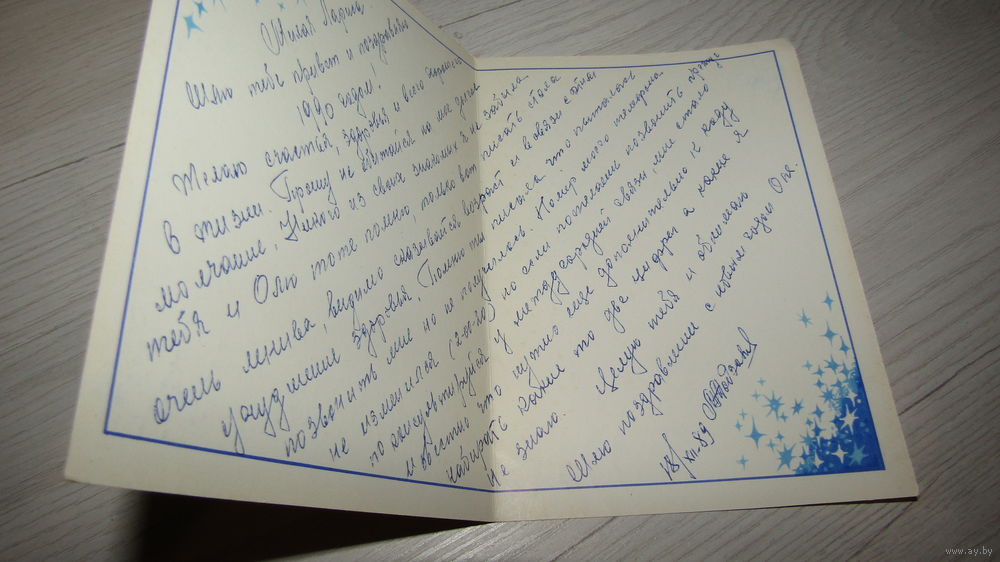 Милая Лариса.
Шлю тебе привет и поздравляю
1990 годом!
Желаю счастья, здоровья и всего хорошего
в жизни. Прошу не обижайся на мое долгое
молчание. Никого из своих знакомых я не забыла
тебя и Олю тоже помню, только вот писать стала
очень ленива, видимо сказывается возраст и в связи с этим
ухудшение здоровья. Помню ты писала, что пыталась
позвонить мне но не получилось. Номер моего телефона
не изменился но если пожелаешь позвонить прежде
по консультируйся у междугородней связи, мне стало
известно что нужно еще дополнительно к коду
набирать какие то две цифры а какие я
не знаю. Целую тебя и обнимаю
Шлю поздравление с новым годом Оле.
18/XII-89
www.ay.by